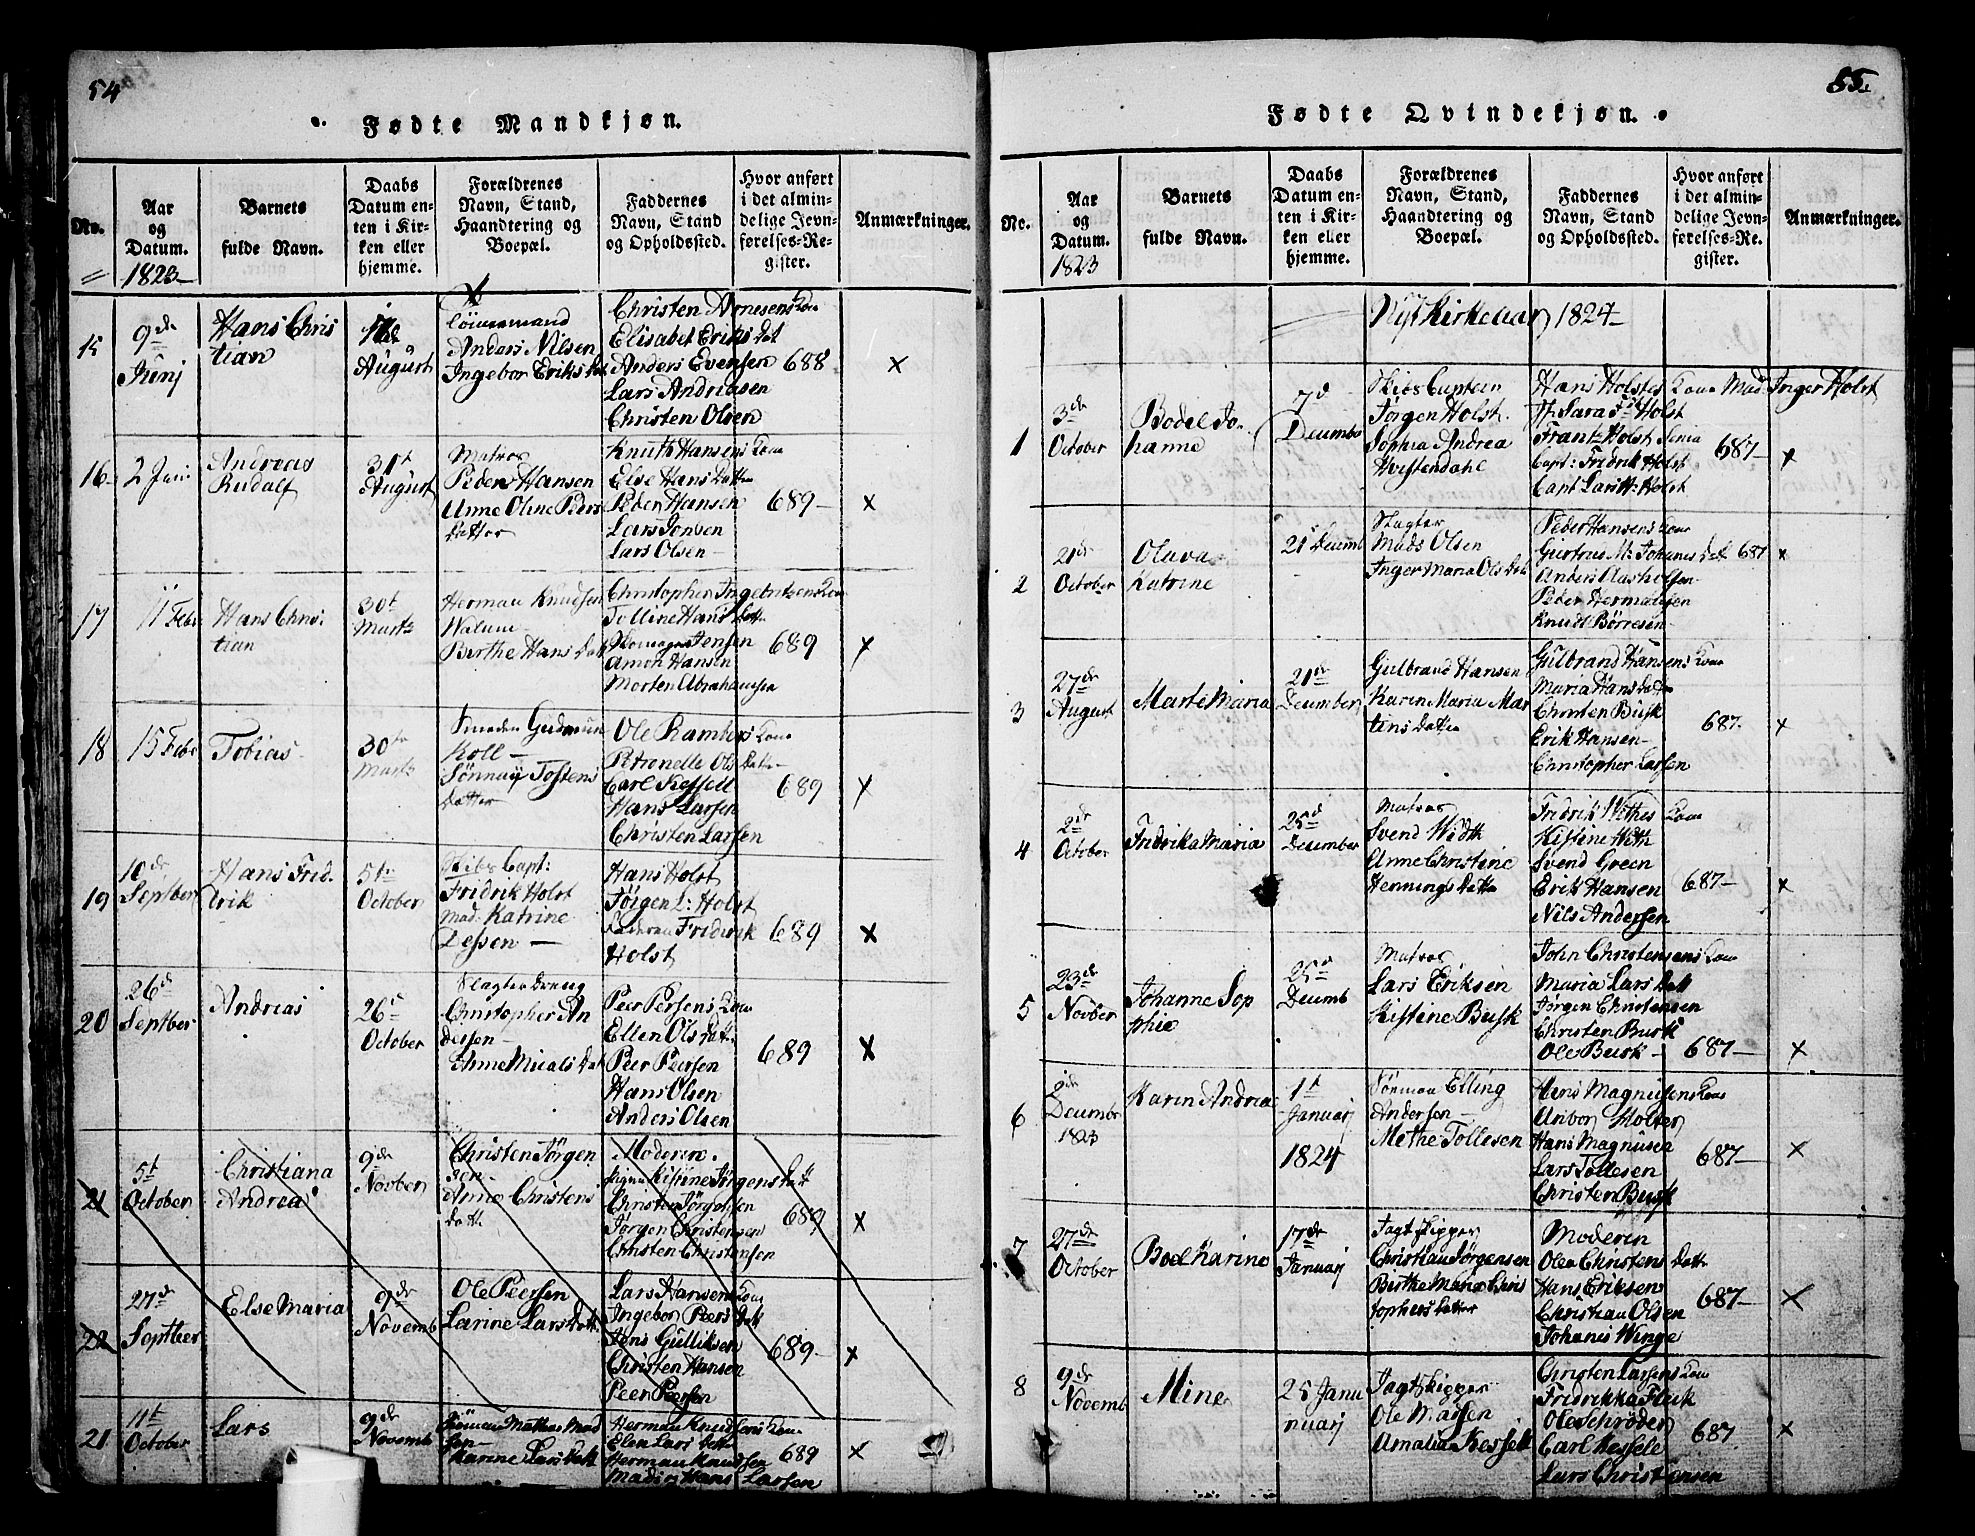 54
Fødte Mandkjøn.
No.
Aar
og
Datum.
1823
Barnets
fulde Navn.
Daabs
Datum en-
ten i Kir-
ken eller
hjemme.
Forældrenes
Navn, Stand,
Haandtering og
Boepæl.
Faddernes
Navn, Stand
og Opholdssted.
Hvor anført
i det almin-
delige Jevn-
førelses-Re-
gister.
Anmærkninger.
15
9de
Junj
Hans Chris
tian
August
Anders Nilsen
Ingebor Eriks Dat
Christen Arnesens Kone
Elisabet Eriks Dat
Anders Evensen
Lars Andriasen
Christen Olsen
688
x
16
2 Juni
Andreas
Rudalf
31t
August
Matros
Peder Hansen
Anne Oline Peders
Datter
Knuth Hansens Kone
Else Hans Datter
Peder Hansen
Lars Jonsen
Lars Olsen
689
x
17
11 Febr
Hans Chris
tian
30t
Marts
Herman Knudsen
Walum
Birthe Hans Datt
Christopher Ingebritsens Kone
Tolline Hans Datt
Jensen
Amon Hansen
Morten Abrahamsen
689
x
18
15 Febr
Tobias
30te
Marts
Koll
Tostens
Datter
Ole Rambers Kone
Petronelle Ols Datter
Carl Kessell
Hans Larsen
Christen Larsen
689
x
19
10de
Septber
Hans Frid
erik
5te
October
Skibs Capt:
Fridrik Holst
Mad. Katrine
Dessen
Hans Holst
Jørgen L: Holst
Friderik
Holst
689
x
20
26de
Septber
Andreas
26t
October
Slagterdreng
Christopher An
dersen
Anne Micals Dat
Peer Persens Kone
Ellen Ols Datt.
Peer Peersen
Hans Olsen
Anders Olsen
689
x
21
5t
October
Christiana
Andrea
9de
Novber
Christen Jørgen
sen
Anne Christens
datt
Moderen.
Pigen Kistine Jørgens Datt
Christen Jørgensen
Jørgen Christensen
Christen Christensen
689
x
22
27de
Septber
Else Maria
9de
Novemb
Ole Peersen
Larine Lars Datt.
Lars Hansens Kone
Ingebor Peers Datt
Jens Gulliksen
Christen Hansen
Peer Peersen
689
x
21
11t
October
Lars
9de
Novemb
Mathis Mad
sen
Karine Lars Datt
Herman Knudsens Kone
Elen Lars Datter
Herman Knudsen
Madis Hans Larsen
689
x
55.
Fødte Qvindekjøn.
No.
Aar
og
Datum.
1823
Barnets
fulde Navn.
Daabs
Datum en-
ten i Kir-
ken eller
hjemme.
Forældrenes
Navn, Stand,
Haandtering og
Boepæl.
Faddernes
Navn, Stand
og Opholdssted.
Hvor anført
i det almin-
delige Jevn-
førelses-Re-
gister.
Anmærkninger.
Nyt Kirkeaar 1824
1
3de
October
Bodel Jo
hanne
7d
Decmber
Skibs Captein
Jørgen Holst
Sophia Andrea
Hvistendahl
Hans Holstes Kone Mad Inger Holst
Jf. Sara Holst
Frantz Holst Senia
Capt: Fridrik Holst
Capt Larits Holst
687
x
2
21de
October
Olava
Katrine
21 Decemb
Slagter
Mads Olsen
Inger Maria Ols Datt
Peder Hansens Kone
Giertrus M: Johanes Dat
Anders Aasholsen
Peder Hermansen
Knudt Børresen
687
x
3
27de
August
Marte Maria
21de
Decmber
Gulbrand Hansen
Karen Maria Mar
tins Datter
Gulbrand Hansens Kone
Maria Hans Datter
Christen Busk
Erik Hansen
Christopher Larsen
687
x
4
2de
October
Fridrika Maria
25d
December
Matros
Svend Width
Anne Christine
Hennings Datter
Fridrik Withes Kone
Kistine With
Svend Green
Erik Hansen
Nils Andersen
687
x
5
23de
Novber
Johanne Sop
phie
25d
Decemb
Matros
Lars Eriksen
Kistine Busk
John Christensens Kone
Maria Lars Datt
Jørgen Christensen
Christen Busk
Ole Busk
687
x
6
8de
Decembr
1823
Karen Andrea
1t
Januarj
1824
Sørman Elling
Andersen
Methe Tollesen
Hans Magnusens Kone
Anbor Molter
Hans Magnusen
Lars Tollesen
Christen Busk
687
x
7
27de
October
Boel Karine
17de
Januarj
Jagtskipper
Christian Jørgensen
Birthe Maria Chris
tophers Datter
Moderen
Olea Christens Datter
Hans Eriksen
Christian Olsen
Johanis Winge
687
x
8
9de
Novemb
Mine
25 Janu
nuarj
Jagtskipper
Ole Massen
Amalia Kessell
Christen Larsens Kone
Fridrikka Fluk
Ole Schrøder
Carl Kessele
Lars Christiansen
687
x